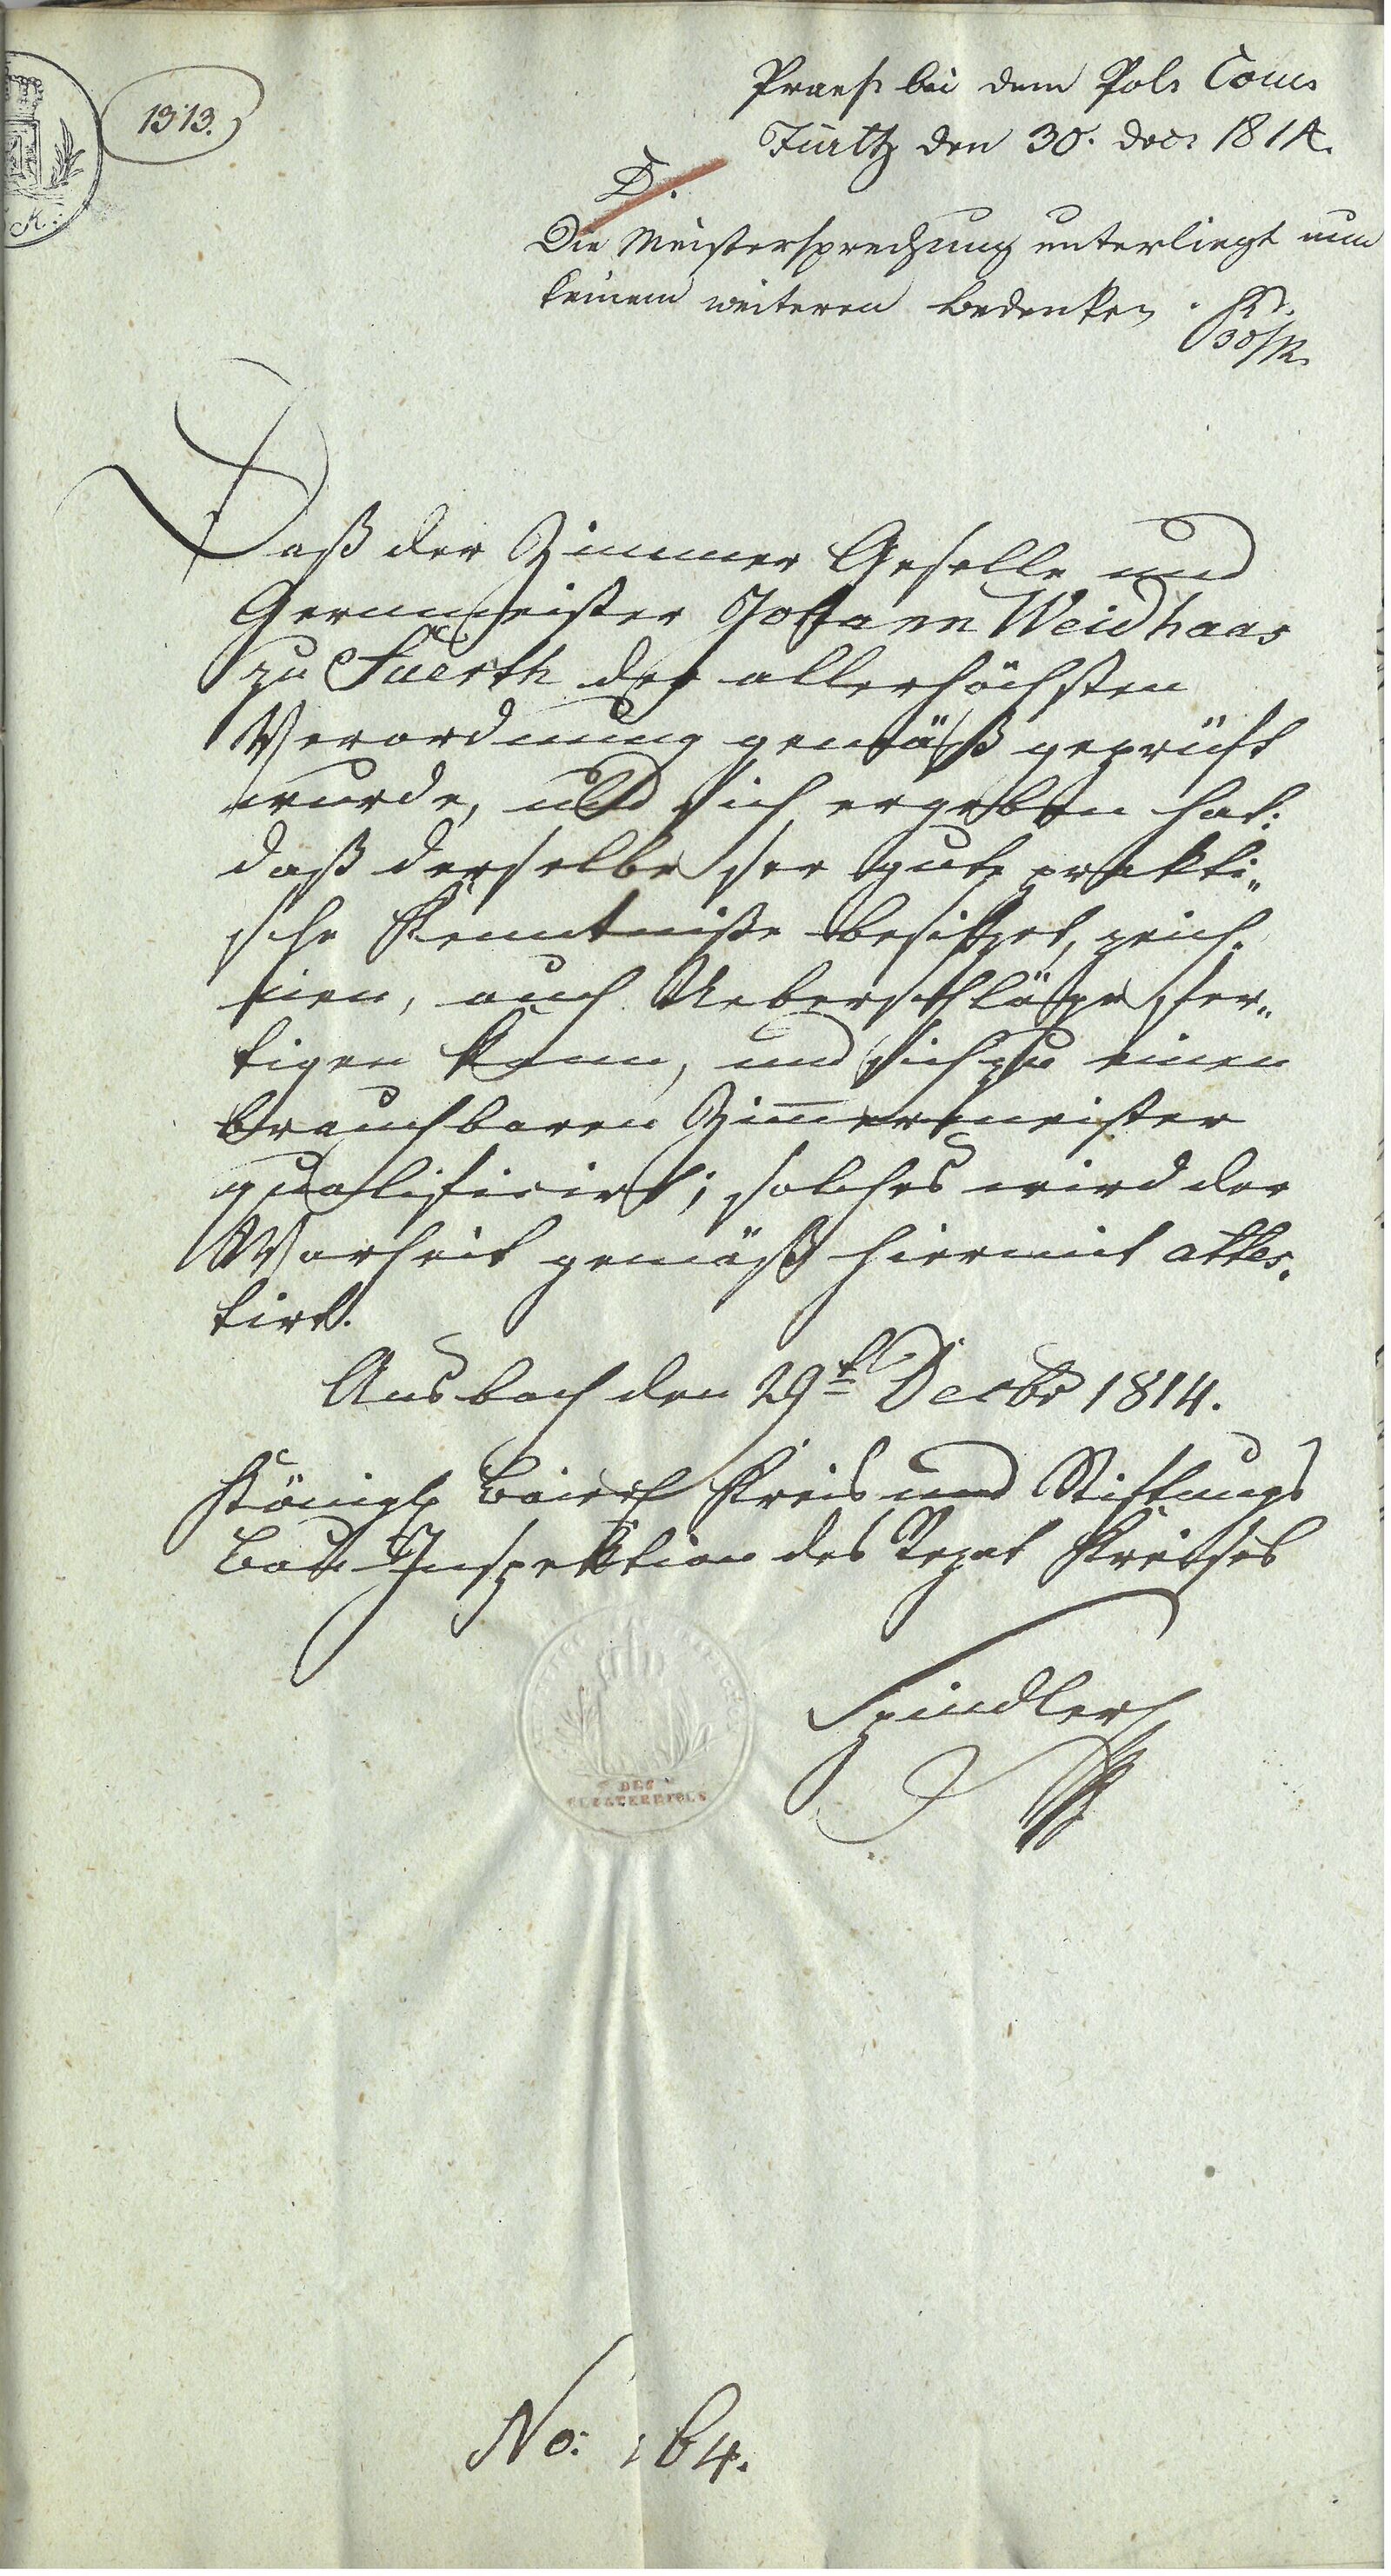 1313.
K.
Praes. bei dem Pol. Com.
Fürth den 30. Dec. 1814.
D.
Die Meistersprechung unterliegt nun
keinem weiteren Bedenken.
30/12.
Daß der Zimmer Geselle und
Johann Weidhaas
zu Fuerth der allerhöchsten
Verordnung gemäß geprüft
wurde, und sich ergeben hat:
daß derselbe ser gute prakti„
sche Kenntniße besitzet, zeich„
nen, auch Ueberschläge fer„
tigen kann, und sich zu einen
brauchbaren Zimermeister
qualificirt; solches wird der
Warheit gemäß hiermit attes„
tirt.
Ansbach den 29t Decbr 1814.
Königl Baierl Kreis und Stiftungs
Bau Inspektion des Rezat Kreises
Spindler
DES
No: 164.